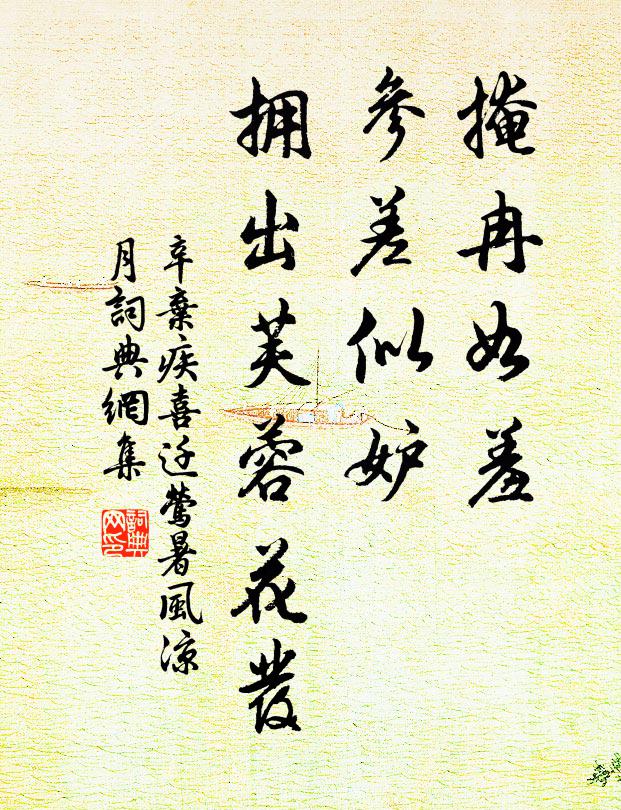 掩冉如羞
參差似妒
拥出芙蓉花發
辛棄疾喜迁鶯暑風凉
月詞典網集
詞典
网印